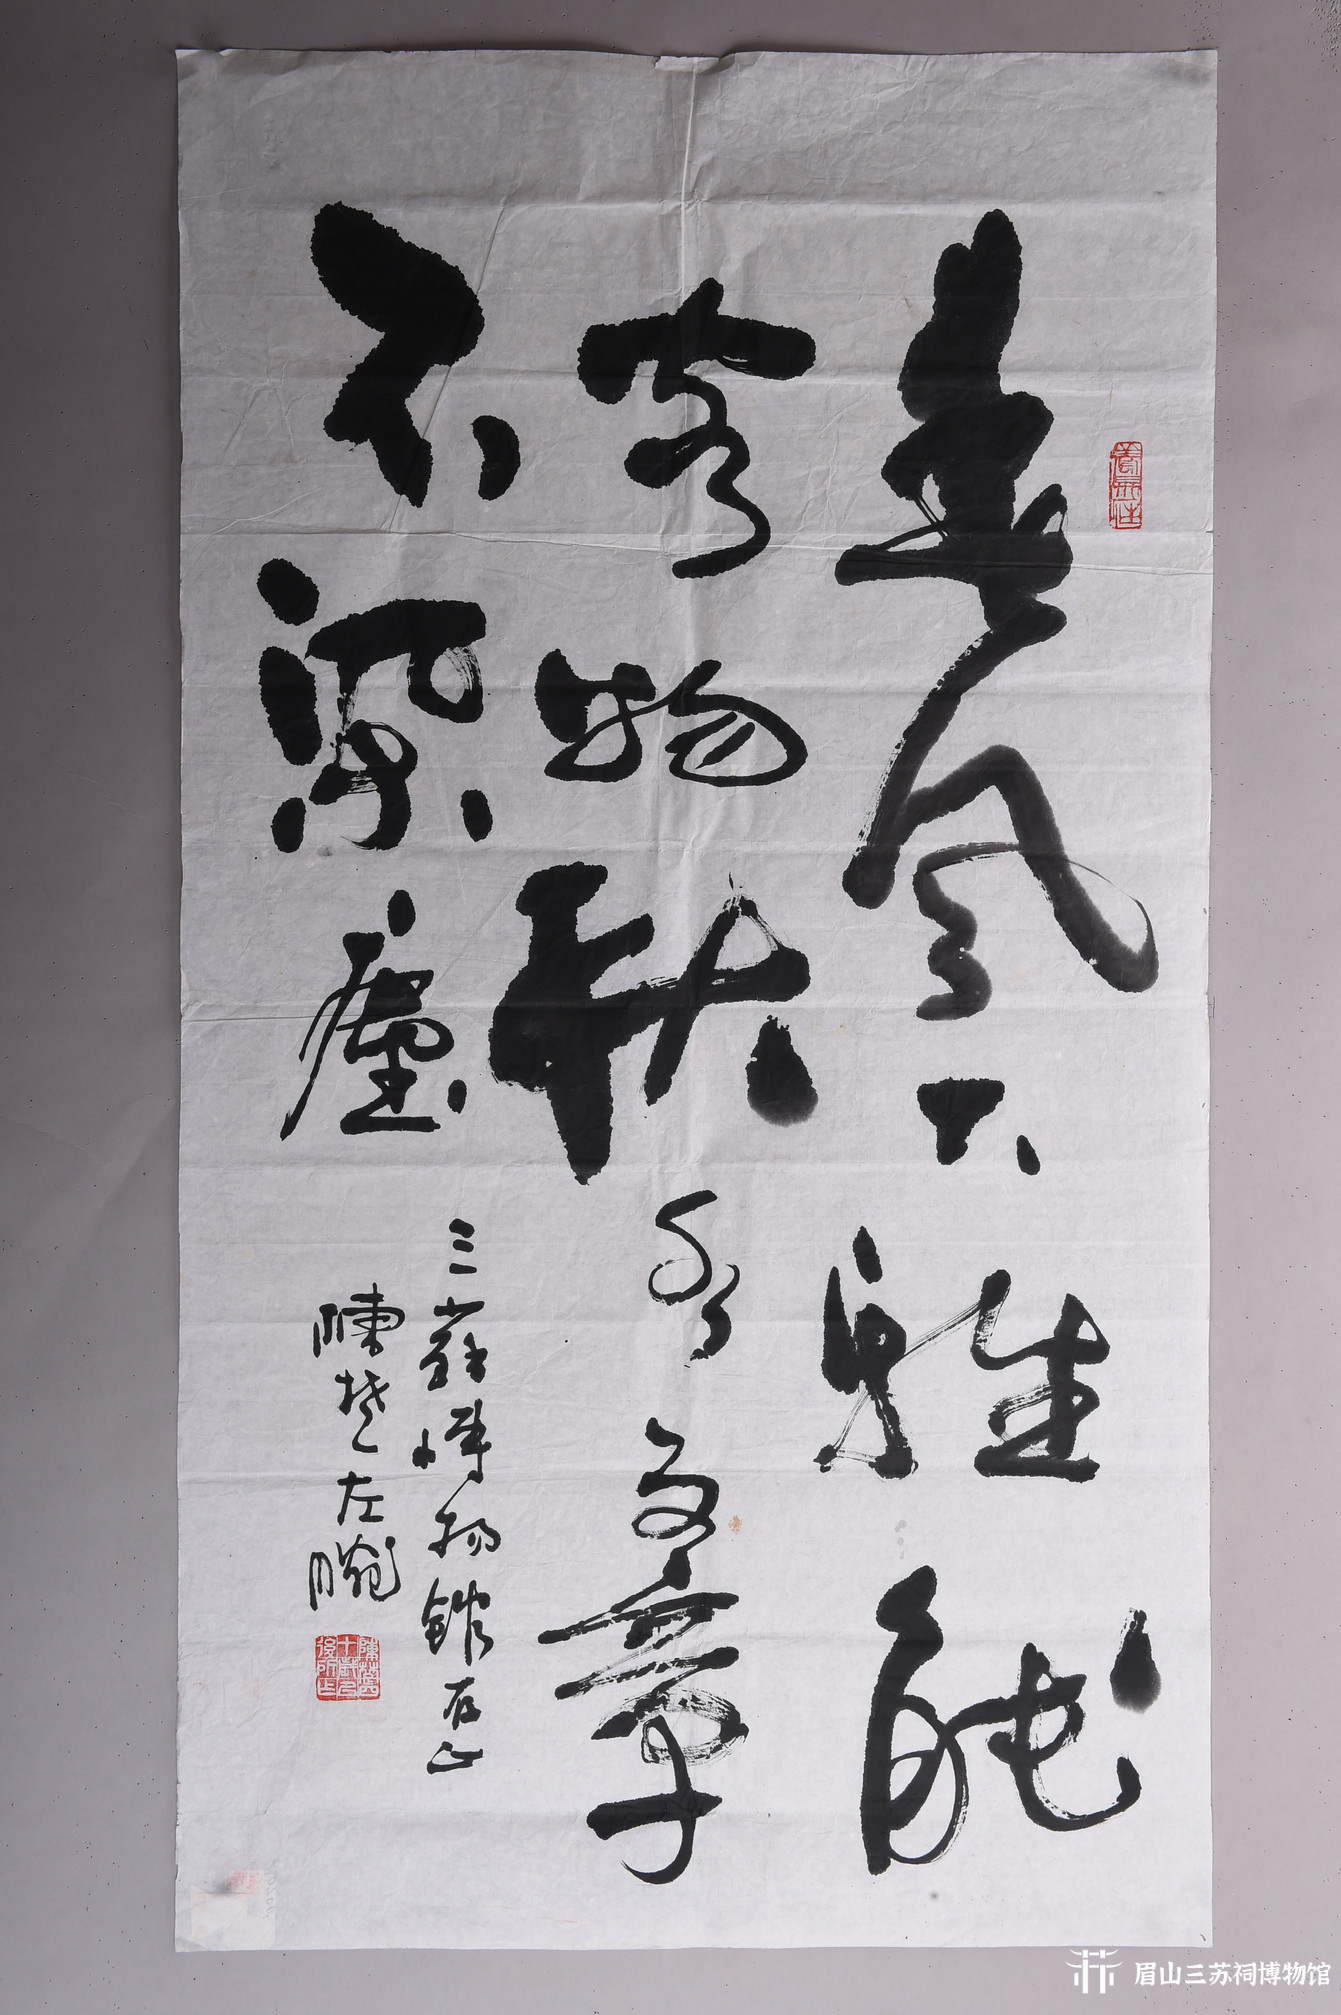 春風大雅能
容物秋水文章
不染塵
三蘇博物館存正
陳楚左腕
眉山三苏祠博物馆